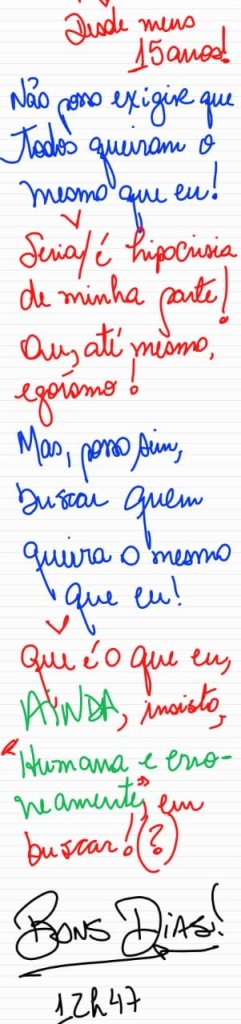 Desde meus
15 anos!
Não posso exigir que
todos queiram o
mesmo que eu!
Seria/é hipocrisia
de minha parte!
Ou, até mesmo,
egoísmo!
Mas, posso sim,
buscar quem
queira o mesmo
que eu!
Que é o que eu,
AINDA, insisto,
"Humana e erro-
neamente", em
buscar! (?)
BONS DIAS!
12h47